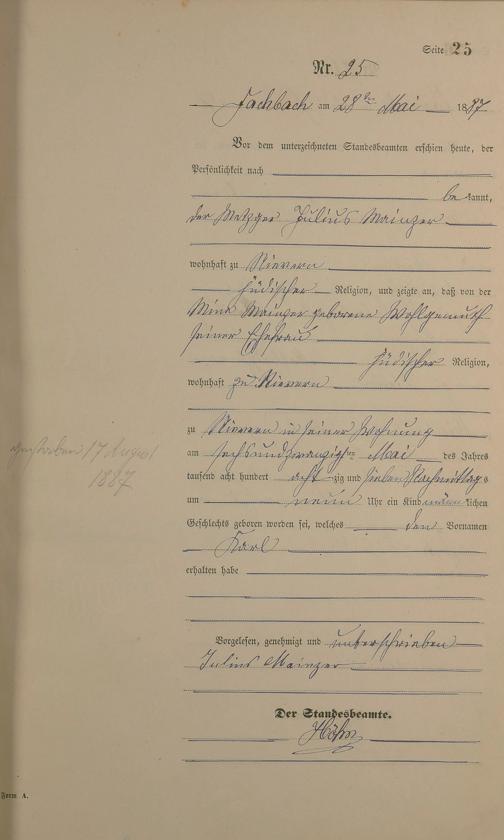 Seite 25
Nr. 25
Fachbach am 28ten Mai 1887
Vor dem unterzeichneten Standesbeamten erschien heute, der
Persönlichkeit nach
be kannt,
der Metzger Julius Mainzer
wohnhaft zu Nievern
jüdischer Religion, und zeigte an, daß von der
Mina Mainzer geborene Wohlgemuth
seiner Ehefrau
jüdischer Religion,
wohnhaft zu Nievern
zu Nievern in seiner Wohnung
am sechsundzwanzigten Mai des Jahres
tausend acht hundert acht zig und sieben Nachmittags
um neun Uhr ein Kind männlichen
Geschlechts geboren worden sei, welches den Vornamen
Karl
erhalten habe
gestorben 17 August
1887
Vorgelesen, genehmigt und unterschrieben
Julius Mainzer
Der Standesbeamte.
Form A.